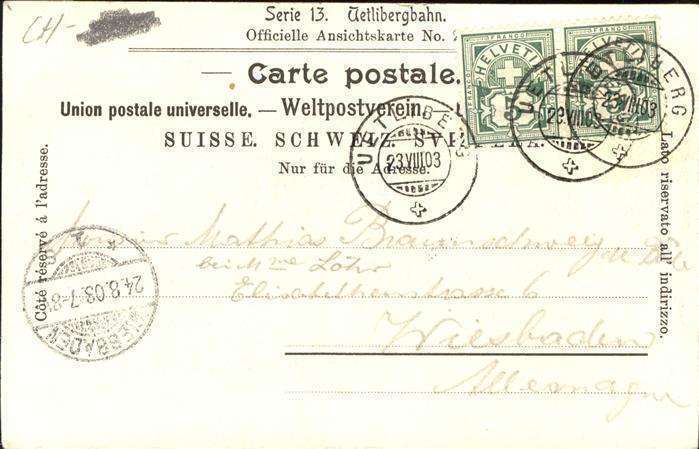 CH-
Serie 13. Uetlibergbahn.
Officielle Ansichtskarte No.
Carte postale.
Union postale universelle. — Weltpostverein.
SUISSE. SCHWEIZ. SVIZZERA.
Nur für die Adresse.
FRANCO FRANCO
HELVETIA HELVETIA
UETLIBERG
23 VIII 03
UETLIBERG
23 VIII 03
UETLIBERG
23 VIII 03
Côté réservé à l'adresse.
Lato riservato all' indirizzo.
Mathis Braunschweig
bei Mme Löhr
Elisabethenstrasse 6
Wiesbaden
Allemagne
WIESBADEN
24.8.03.7-8